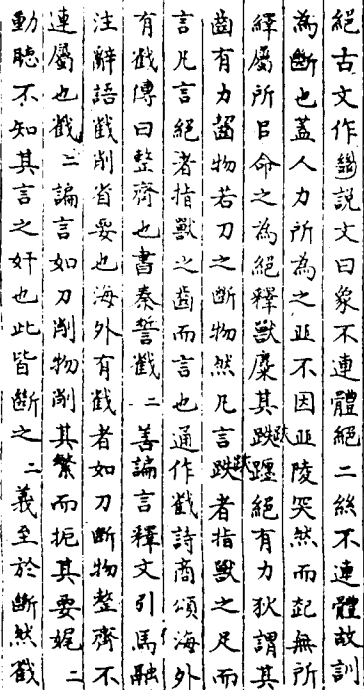 絕古文作𢇍說文曰象不連體絕二絲不連體故訓
為斷也蓋人力所為之丘不因丘陵突然而起無所
繹屬所㠯命之為絕釋獸麋其跡躔絕有力狄謂其
齒有力齧物若刀之斷物然凡言跌者指獸之足而
言凡言絕者指獸之齒而言也通作截詩商頌海外
有截傳曰整齊也書秦誓截二善諞言釋文引馬融
注辭語截削省要也海外有截者如刀斷物整齊不
連屬也截二諞言如刀削物削其繁而扼其要娓二
動聽不知其言之奸也此皆斷之二義至於斷然截